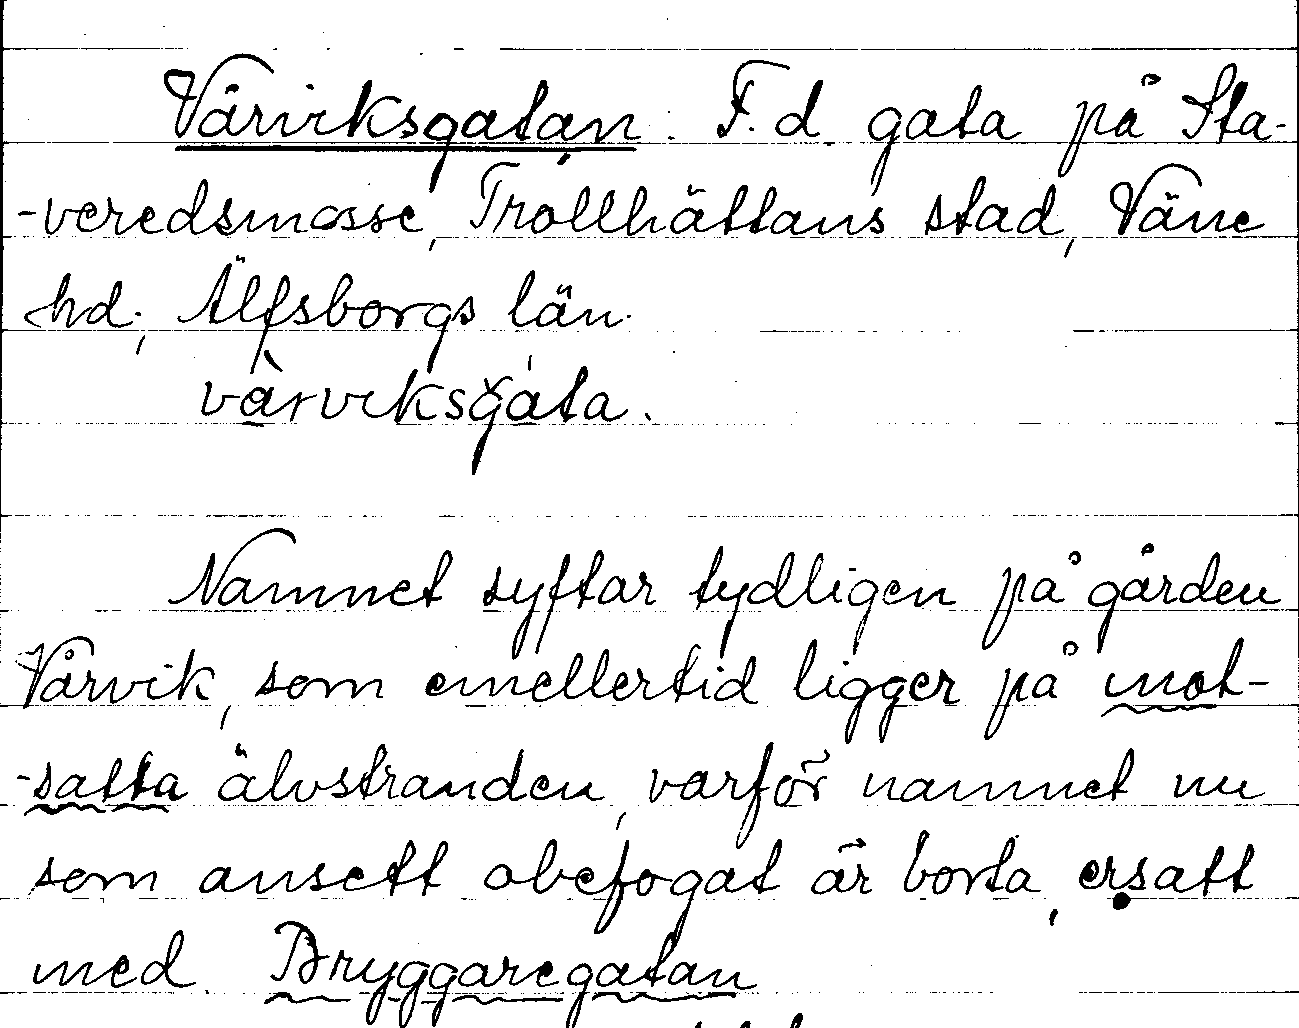 Vårviksgatan. F.d. gata på Sta-
-veredsmosse, Trollhättans stad, Väne
hd; Älfsborgs län.
vàrviksgáta.
Namnet syftar tydligen på gården
Vårvik, som emellertid ligger på mot-
-satta älvstranden, varför namnet nu
som ansett obefogat är borta, ersatt
med Bryggaregatan